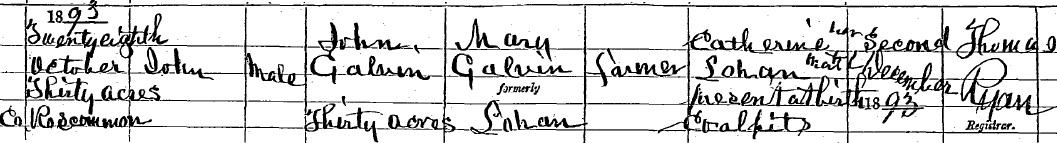 1893
Twenty eighth October Thirty acres Co Roscommon
John
Male
John Galvin Thirty acres
Mary Galvin formerly Lohan
Farmer
Catherine Lohan her mark present at birth Coalpits
Second December 1893
Thomas Ryan Registrar.